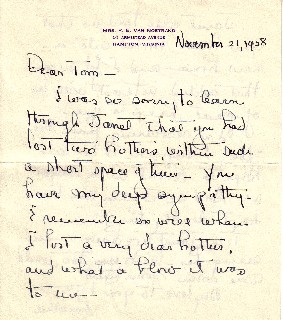 MRS. P. E. VAN NOSTRAND
ARMISTEAD AVENUE
HAMPTON, VIRGINIA
November 21, 1958
Dear Tim —
I was so sorry, to learn
through Janet that you had
lost two brothers, within such
a short space of time — You
have my deep sympathy.
I remember so well when
I lost a very dear brother,
and what a blow it was
to me —